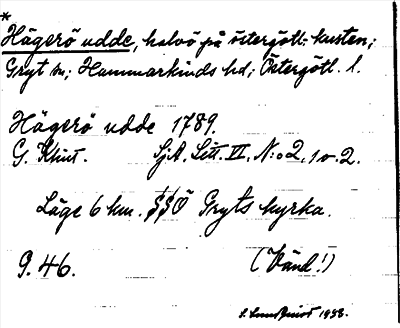 *
Hägerö udde, halvö på östergötl. kusten;
Gryt sn; Hammarkinds hd; Östergötl. l.
Hägerö udde 1789.
G. Klint. SjA. Litt. VI, N:o 2, 1 o. 2.
Läge 6 km. SSÖ Gryts kyrka.
9.46. (Vänd!)
1938.